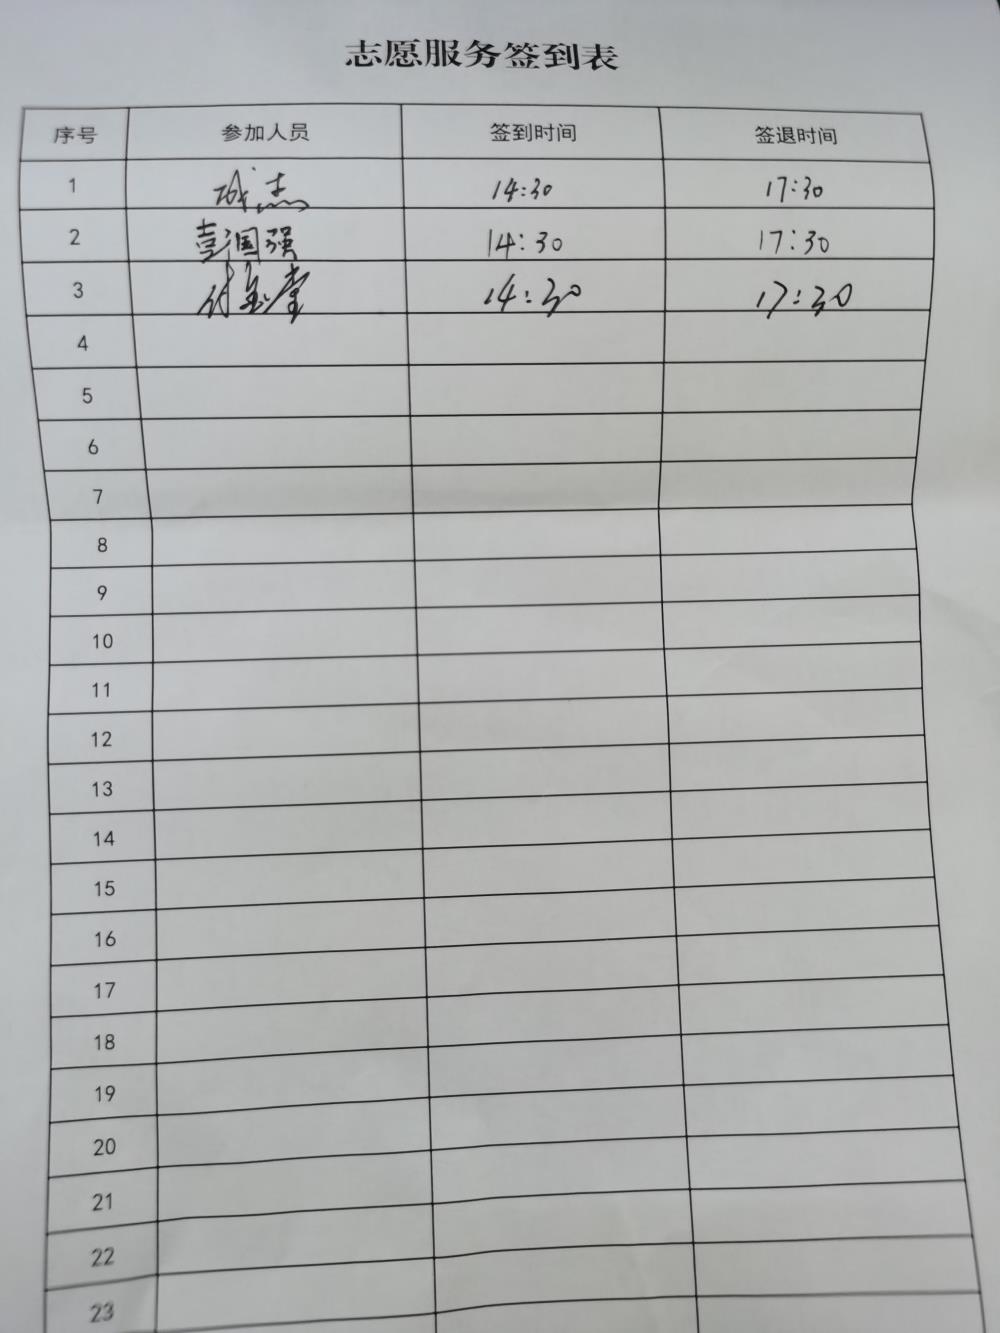 志愿服务签到表
序号 参加人员 签到时间 签退时间
1 成志 14:30 17:30
2 彭国强 14:30 17:30
3 付 14:30 17:30
4
5
6
7
8
9
10
11
12
13
14
15
16
17
18
19
20
21
22
23